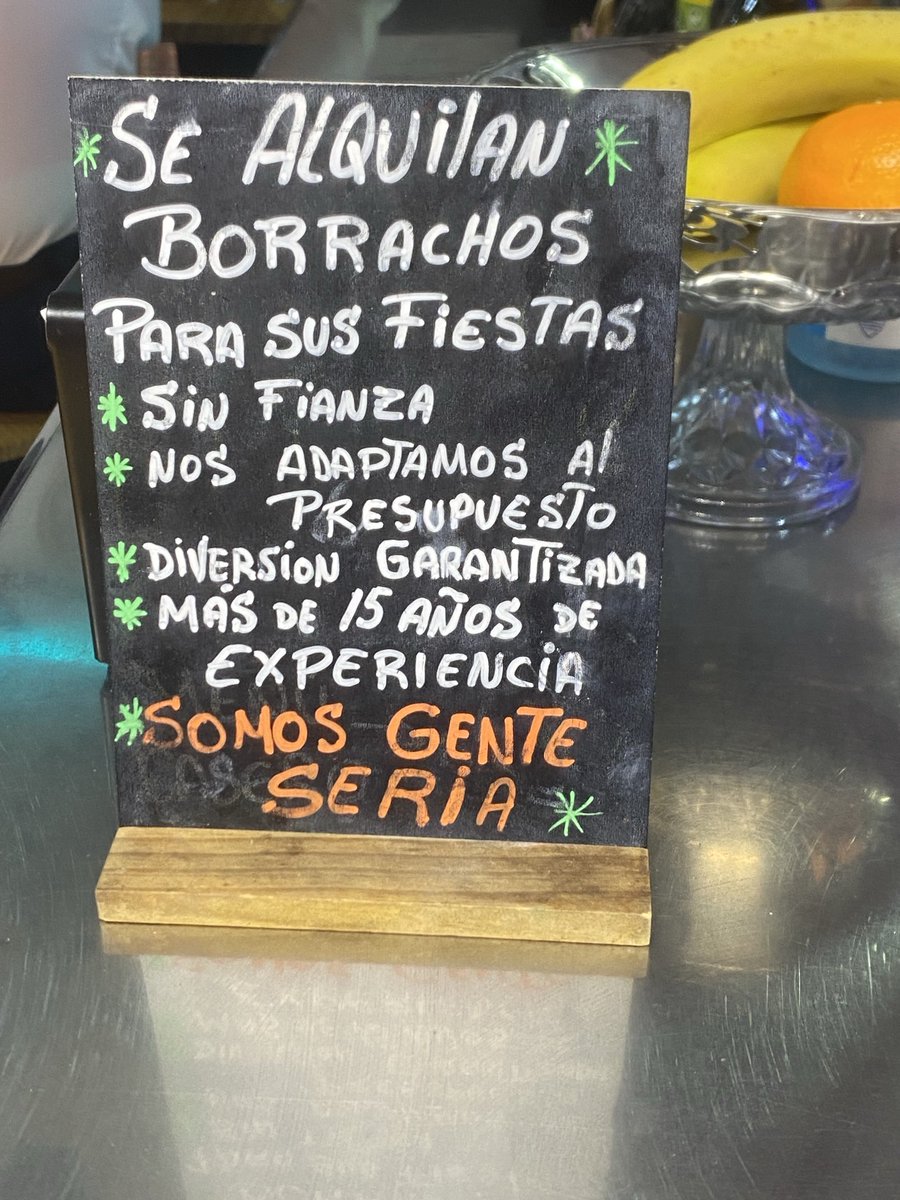 SE ALQUILAN
BORRACHOS
PARA SUS FIESTAS
* SIN FIANZA
* NOS ADAPTAMOS Al
PRESUPUESTO
* DIVERSION GARANTIZADA
* MÁS DE 15 AÑOS DE
EXPERIENCIA
* SOMOS GENTE
SERIA *